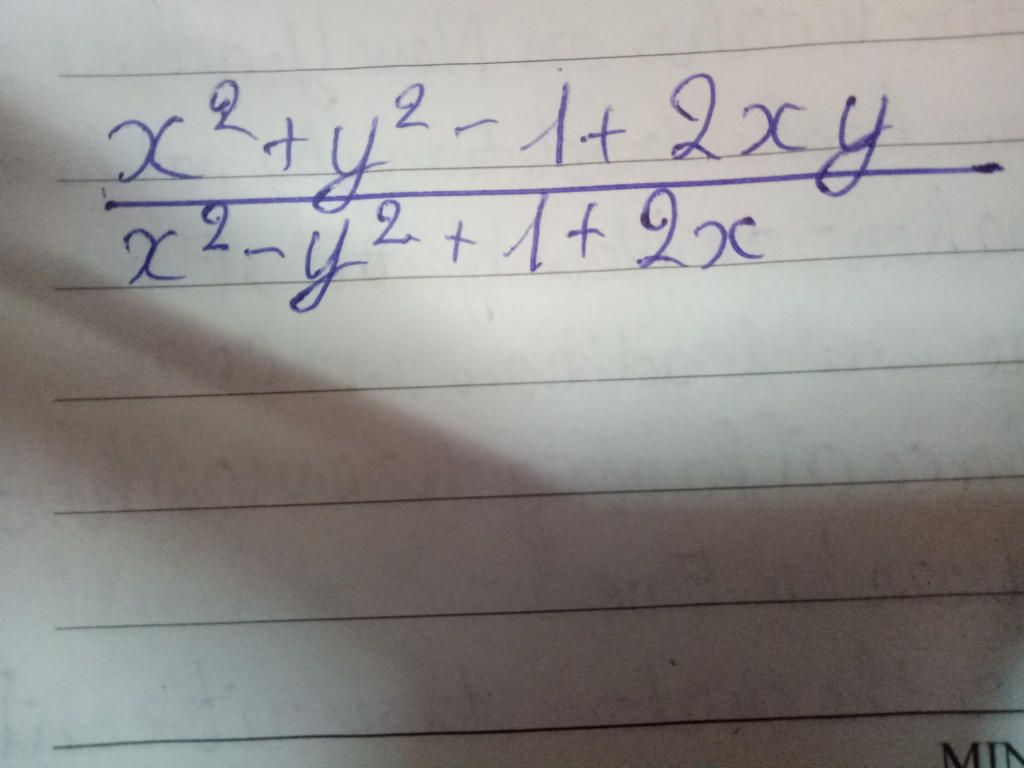 x² + y² - 1 + 2xy
x² - y² + 1 + 2x
MIN